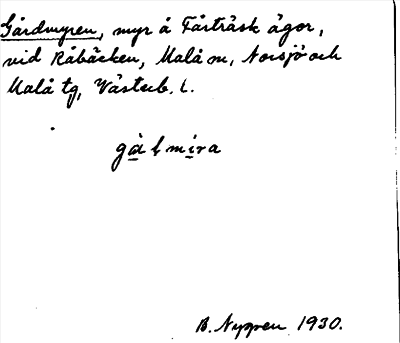 Gårdmyren, myr å Fårträsk ägor,
vid Råbäcken, Malå sn, Norsjö och
Malå tg, Västerb. l.
gålmira
B. Nygren 1930.